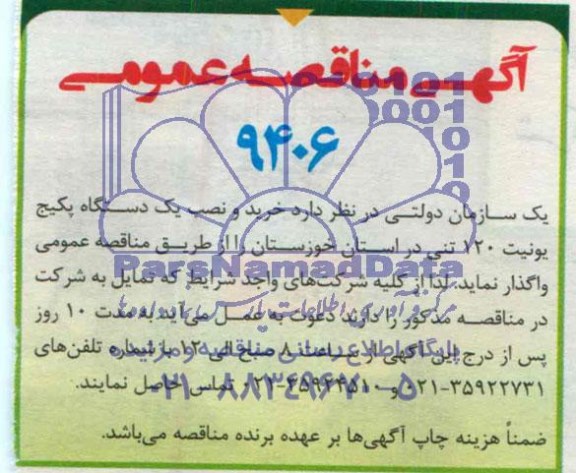 آگهی مناقصه عمومی
۹۴۰۶
یک سازمان دولتی در نظر دارد خرید و نصب یک دستگاه پکیج
یونیت ۱۲۰ تنی در استان خوزستان را از طریق مناقصه عمومی
واگذار نماید. لذا از کلیه شرکت‌های واجد شرایط که تمایل به شرکت
در مناقصه مذکور را دارند دعوت به عمل می‌آید به مدت ۱۰ روز
پس از درج این آگهی از ساعت ۸ صبح الی ۱۲ با شماره تلفن‌های
۰۲۱-۳۵۹۲۲۷۳۱ و ۰۲۱-۳۵۹۲۴۵۱۰ تماس حاصل نمایند.
ضمناً هزینه چاپ آگهی‌ها بر عهده برنده مناقصه می‌باشد.
ParsNamadData